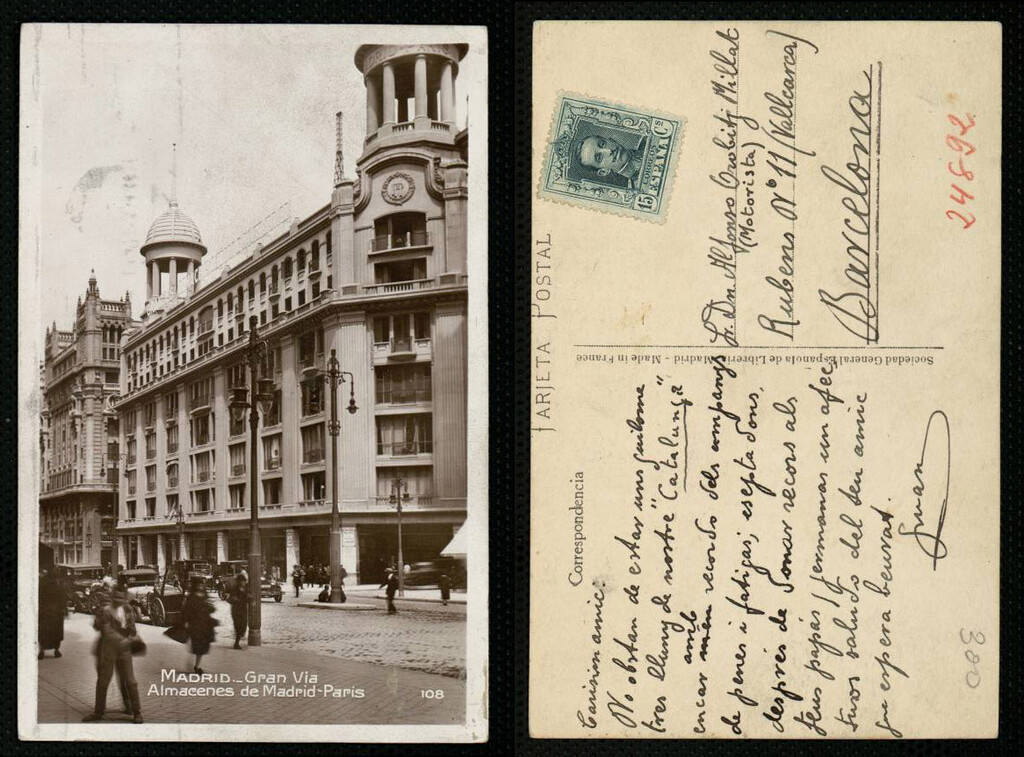 MADRID_Gran Via
Almacenes de Madrid-Paris
108
TARJETA POSTAL
Correspondencia
Sociedad General Española de Librería Madrid - Made in France
15 Cs
ESPAÑA
Carisim amic:
No obstan de estar uns quilome
tres lluny de nostre "Catalunya"
encar amb recordo dels companys
de penes i fatigas; esepta dons,
després de donar recors als
teus papás y jermanas un afec
turos saluts del teu amic
que espera beurat.
Juan
S. Dn Alfonso Orobitj Millat
(Motorista)
Rubens Nº 11 (Vallcarca)
Barcelona
24892
300